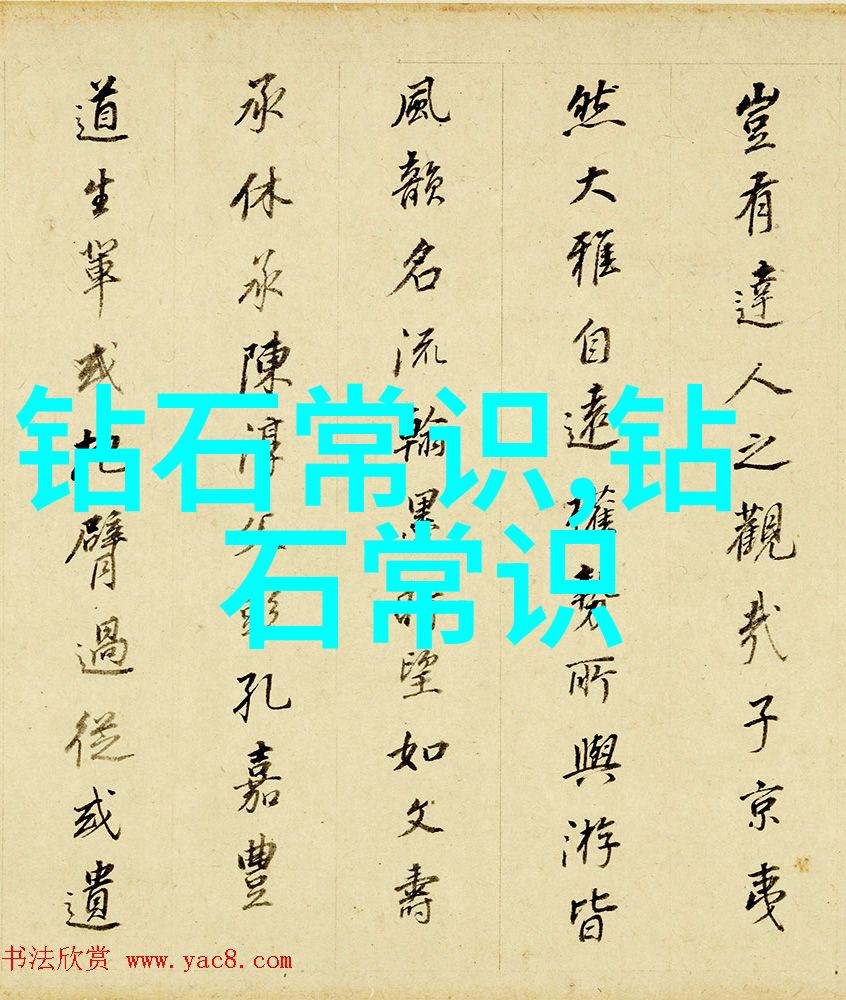 豈有達人之觀哉子京夷
然大雅自遠所與游皆
風韻名流翰墨時望如文壽
承休承陳淳父彭孔嘉豐
道生輩或把臂過從或遺
钻石常识,钻
石常识
书法欣赏 www.yac8.com